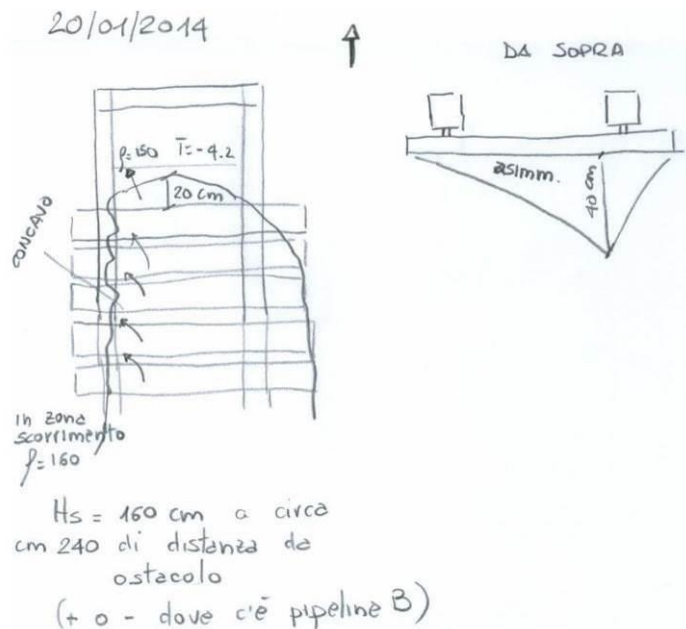 20/01/2014
DA SOPRA
ρ=150 T=-4.2
20 cm
asimm.
40 cm
CONCAVO
in zona
scorrimento
ρ=160
Hs = 160 cm a circa
cm 240 di distanza da
ostacolo
(+ o - dove c'è pipeline B)